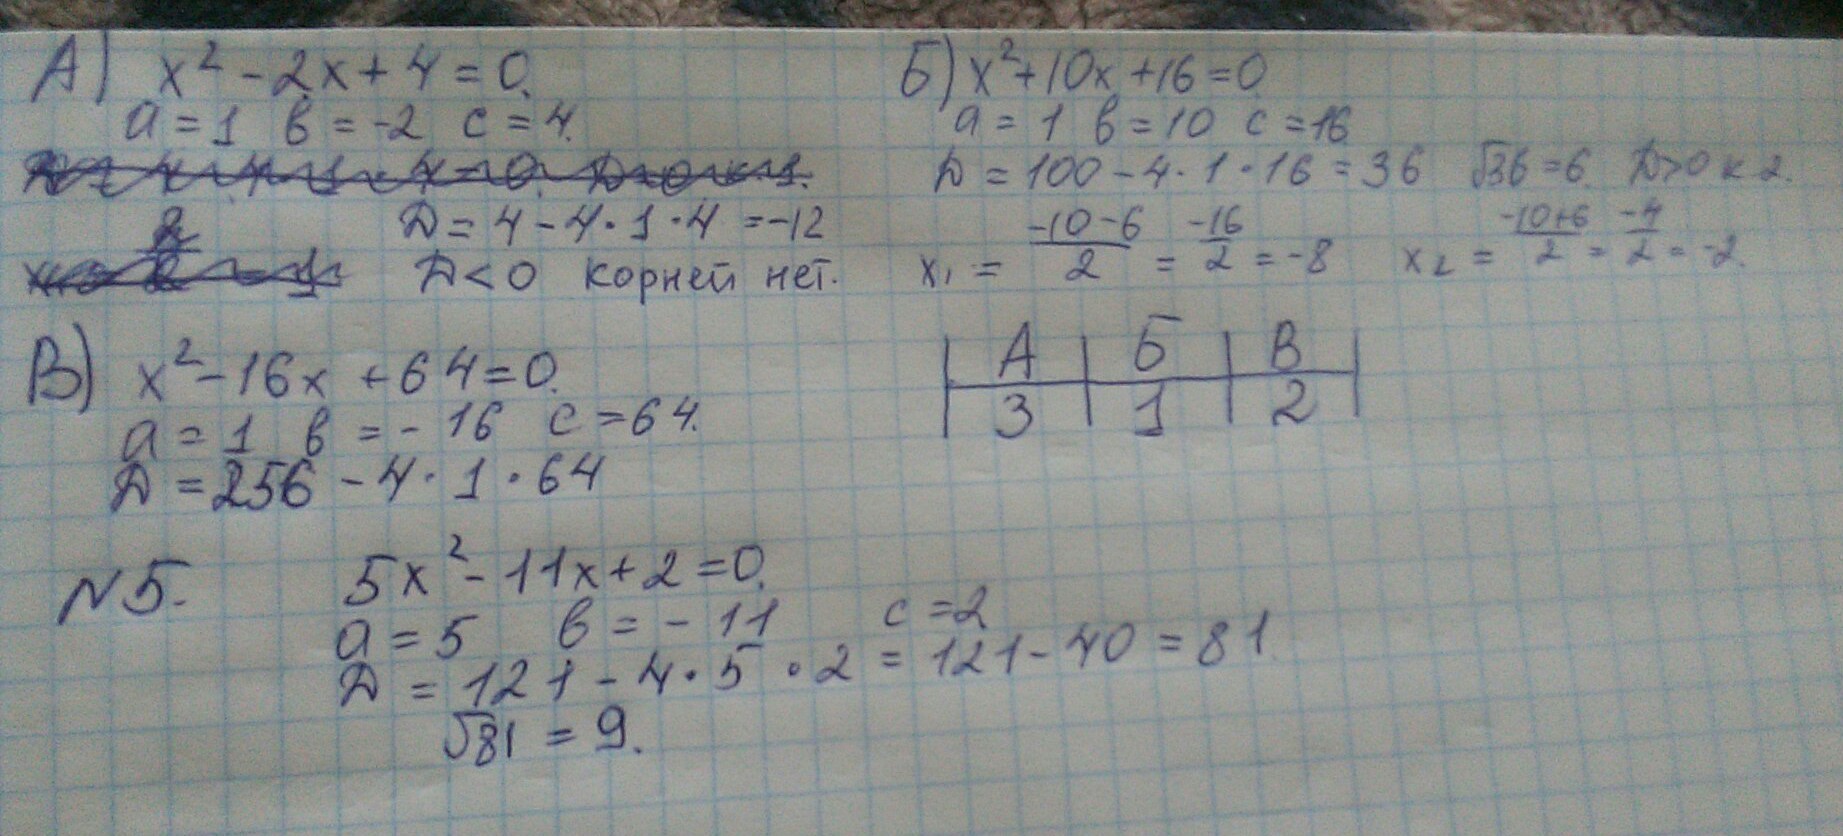 А) x² - 2x + 4 = 0.
a = 1 в = -2 c = 4.
Д = 4 - 4·1·4 = -12
Д < 0 корней нет.
Б) x² + 10x + 16 = 0
a = 1 в = 10 c = 16
Д = 100 - 4·1·16 = 36 √36 = 6. Д > 0 к 2.
x₁ = (-10-6)/2 = -16/2 = -8 x₂ = (-10+6)/2 = -4/2 = -2.
В) x² - 16x + 64 = 0.
a = 1 в = - 16 c = 64.
Д = 256 - 4·1·64
А Б В
3 1 2
N5. 5x² - 11x + 2 = 0.
a = 5 в = - 11 c = 2
Д = 121 - 4·5·2 = 121 - 40 = 81.
√81 = 9.